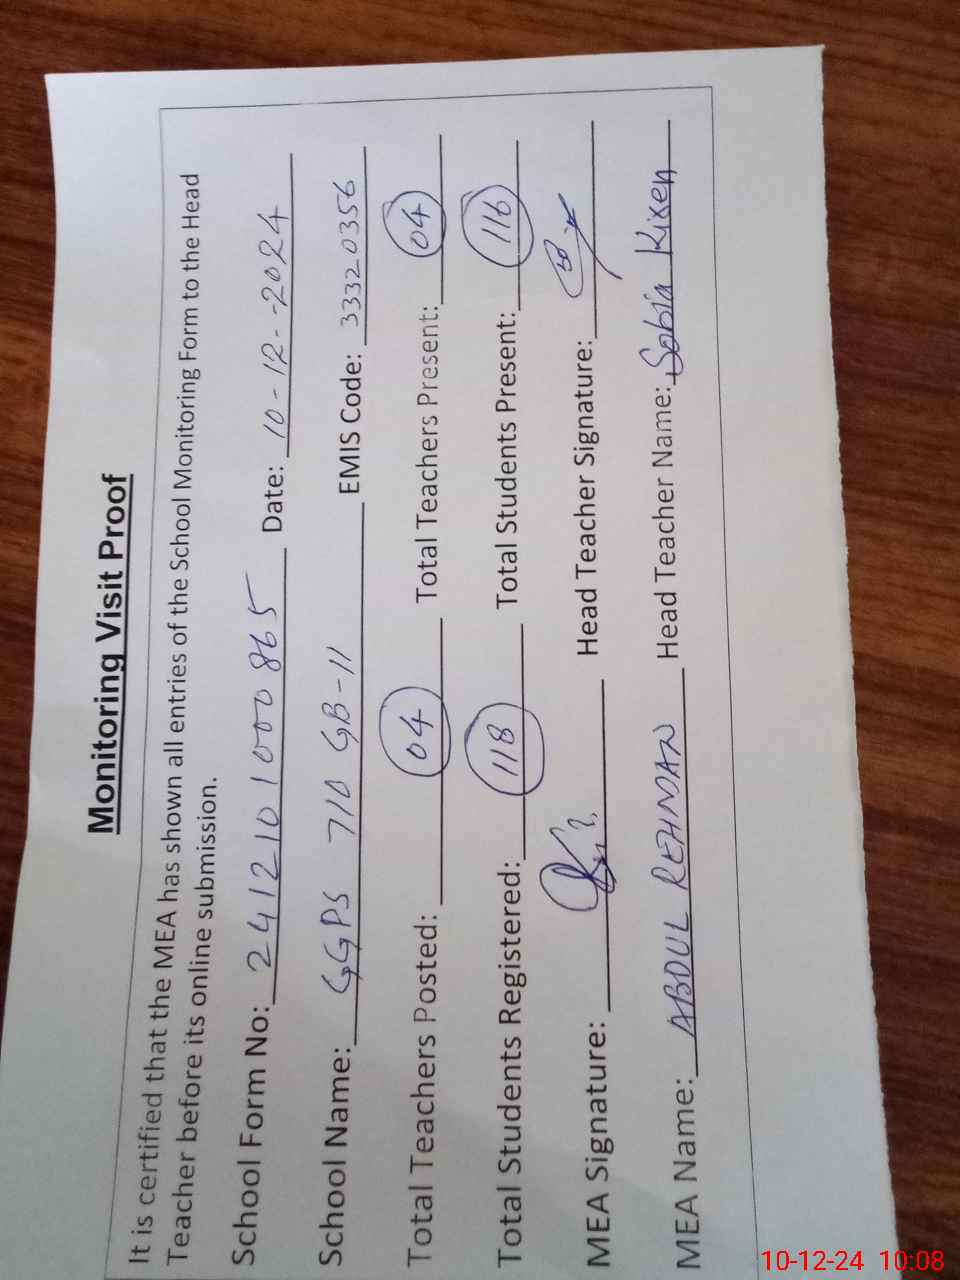 Monitoring Visit Proof
It is certified that the MEA has shown all entries of the School Monitoring Form to the Head
Teacher before its online submission.
School Form No: 2412101000865 Date: 10-12-2024
School Name: GGPS 710 GB-11 EMIS Code: 33320356
Total Teachers Posted: 04 Total Teachers Present: 04
Total Students Registered: 118 Total Students Present: 116
MEA Signature: Head Teacher Signature:
MEA Name: ABDUL REHMAN Head Teacher Name: Sobia Kiren
10-12-24 10:08